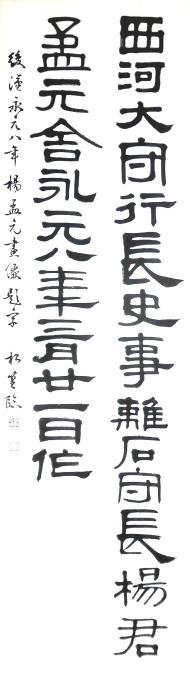 西河大守行長史事離石守長楊君
孟元舍永元八年三月廿一日作
後漢永元八年楊孟元畫像題字